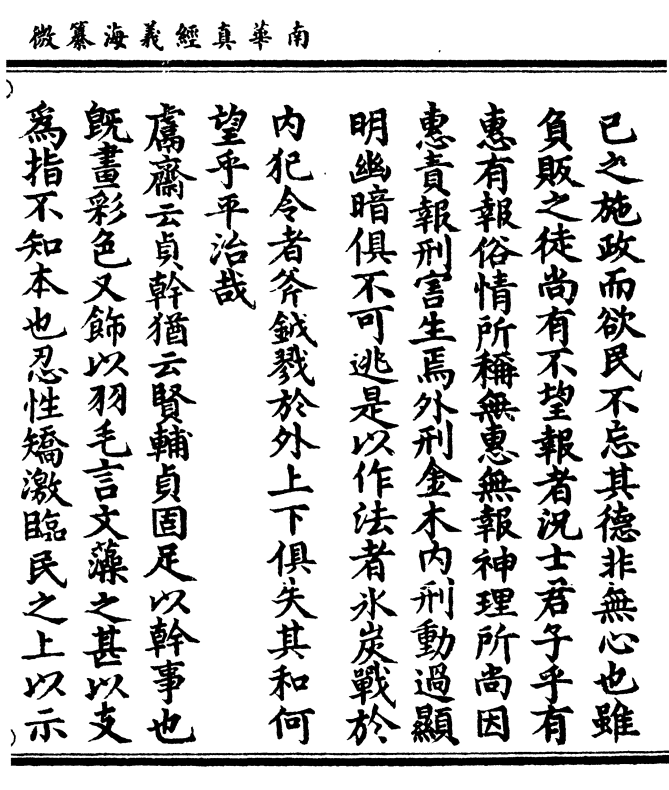 南華真經義海纂微
已之施政而欲民不忘其德非無心也雖
負販之徒尚有不望報者況士君子乎有
惠有報俗情所稱無惠無報神理所尚因
惠責報刑害生焉外刑金木內刑動過顯
明幽暗俱不可逃是以作法者氷炭戰於
內犯令者斧鉞戮於外上下俱失其和何
望乎平治哉
鬳齋云貞幹猶云賢輔貞固足以幹事也
既畫彩色又飾以羽毛言文藻之甚以支
為指不知本也忍性矯激臨民之上以示